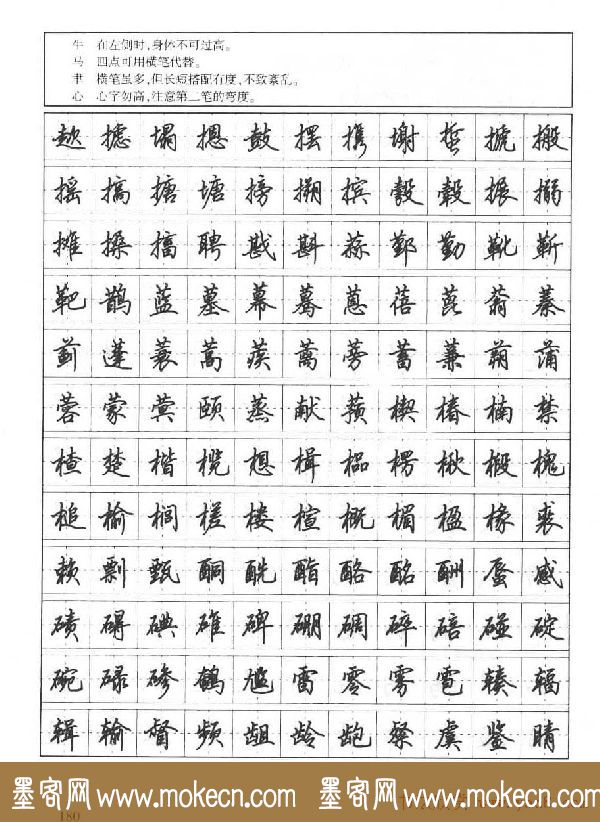 牛 在左侧时,身体不可过高。
马 四点可用横笔代替。
聿 横笔虽多,但长短搭配有度,不致紊乱。
心 心字勿高,注意第二笔的弯度。
趑 摅 塌 摁 鼓 摆 携 塮 蜇 搋 搬
摇 搞 搪 塘 搒 搠 摈 彀 毂 搌 搦
摊 搡 搐 聘 戡 斟 蒜 鄞 勤 靴 靳
靶 鹊 蓝 墓 幕 蓦 蒽 蓓 蓖 蓊 蓁
蓟 蓬 蓑 蒿 蒺 蓠 蒡 蓄 蒹 蒴 蒲
蓉 蒙 蓂 颐 蒸 献 蓣 楔 椿 楠 禁
楂 楚 楷 榄 想 楫 榀 楞 楸 椴 槐
槌 榆 榈 槎 楼 楦 概 楣 楹 椽 裘
赖 剽 甄 酮 酰 酯 酪 酩 酬 蜃 感
碛 碍 碘 碓 碑 硼 碉 碎 碚 碰 碇
碗 碌 碜 鹌 尴 雷 零 雾 雹 辏 辐
辑 输 督 频 龃 龄 龅 粲 虞 鉴 睛
墨客网 www.mokecn.com 墨客网 www.mokecn.com
180